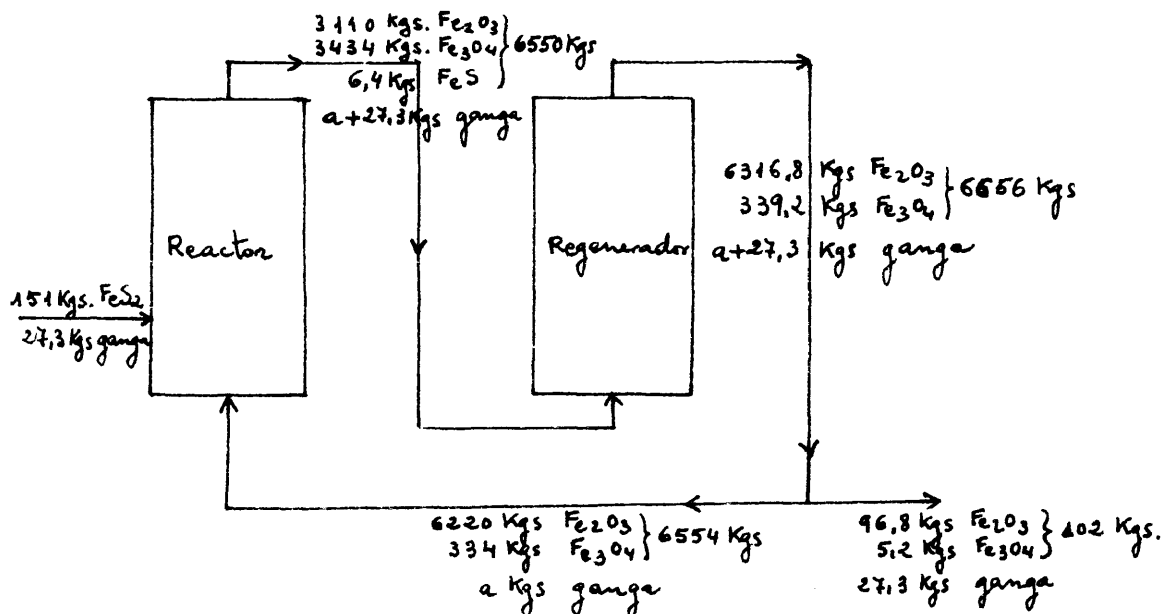 3110 Kgs. Fe2O3
3434 Kgs. Fe3O4 } 6550 Kgs
6,4 Kgs FeS
a+27,3 Kgs ganga
6316,8 Kgs Fe2O3
339,2 Kgs Fe3O4 } 6656 Kgs
a+27,3 Kgs ganga
Reactor
Regenerador
151 Kgs. FeS2
27,3 Kgs ganga
6220 Kgs Fe2O3
334 Kgs Fe3O4 } 6554 Kgs
a Kgs ganga
96,8 Kgs Fe2O3
5,2 Kgs Fe3O4 } 102 Kgs.
27,3 Kgs ganga